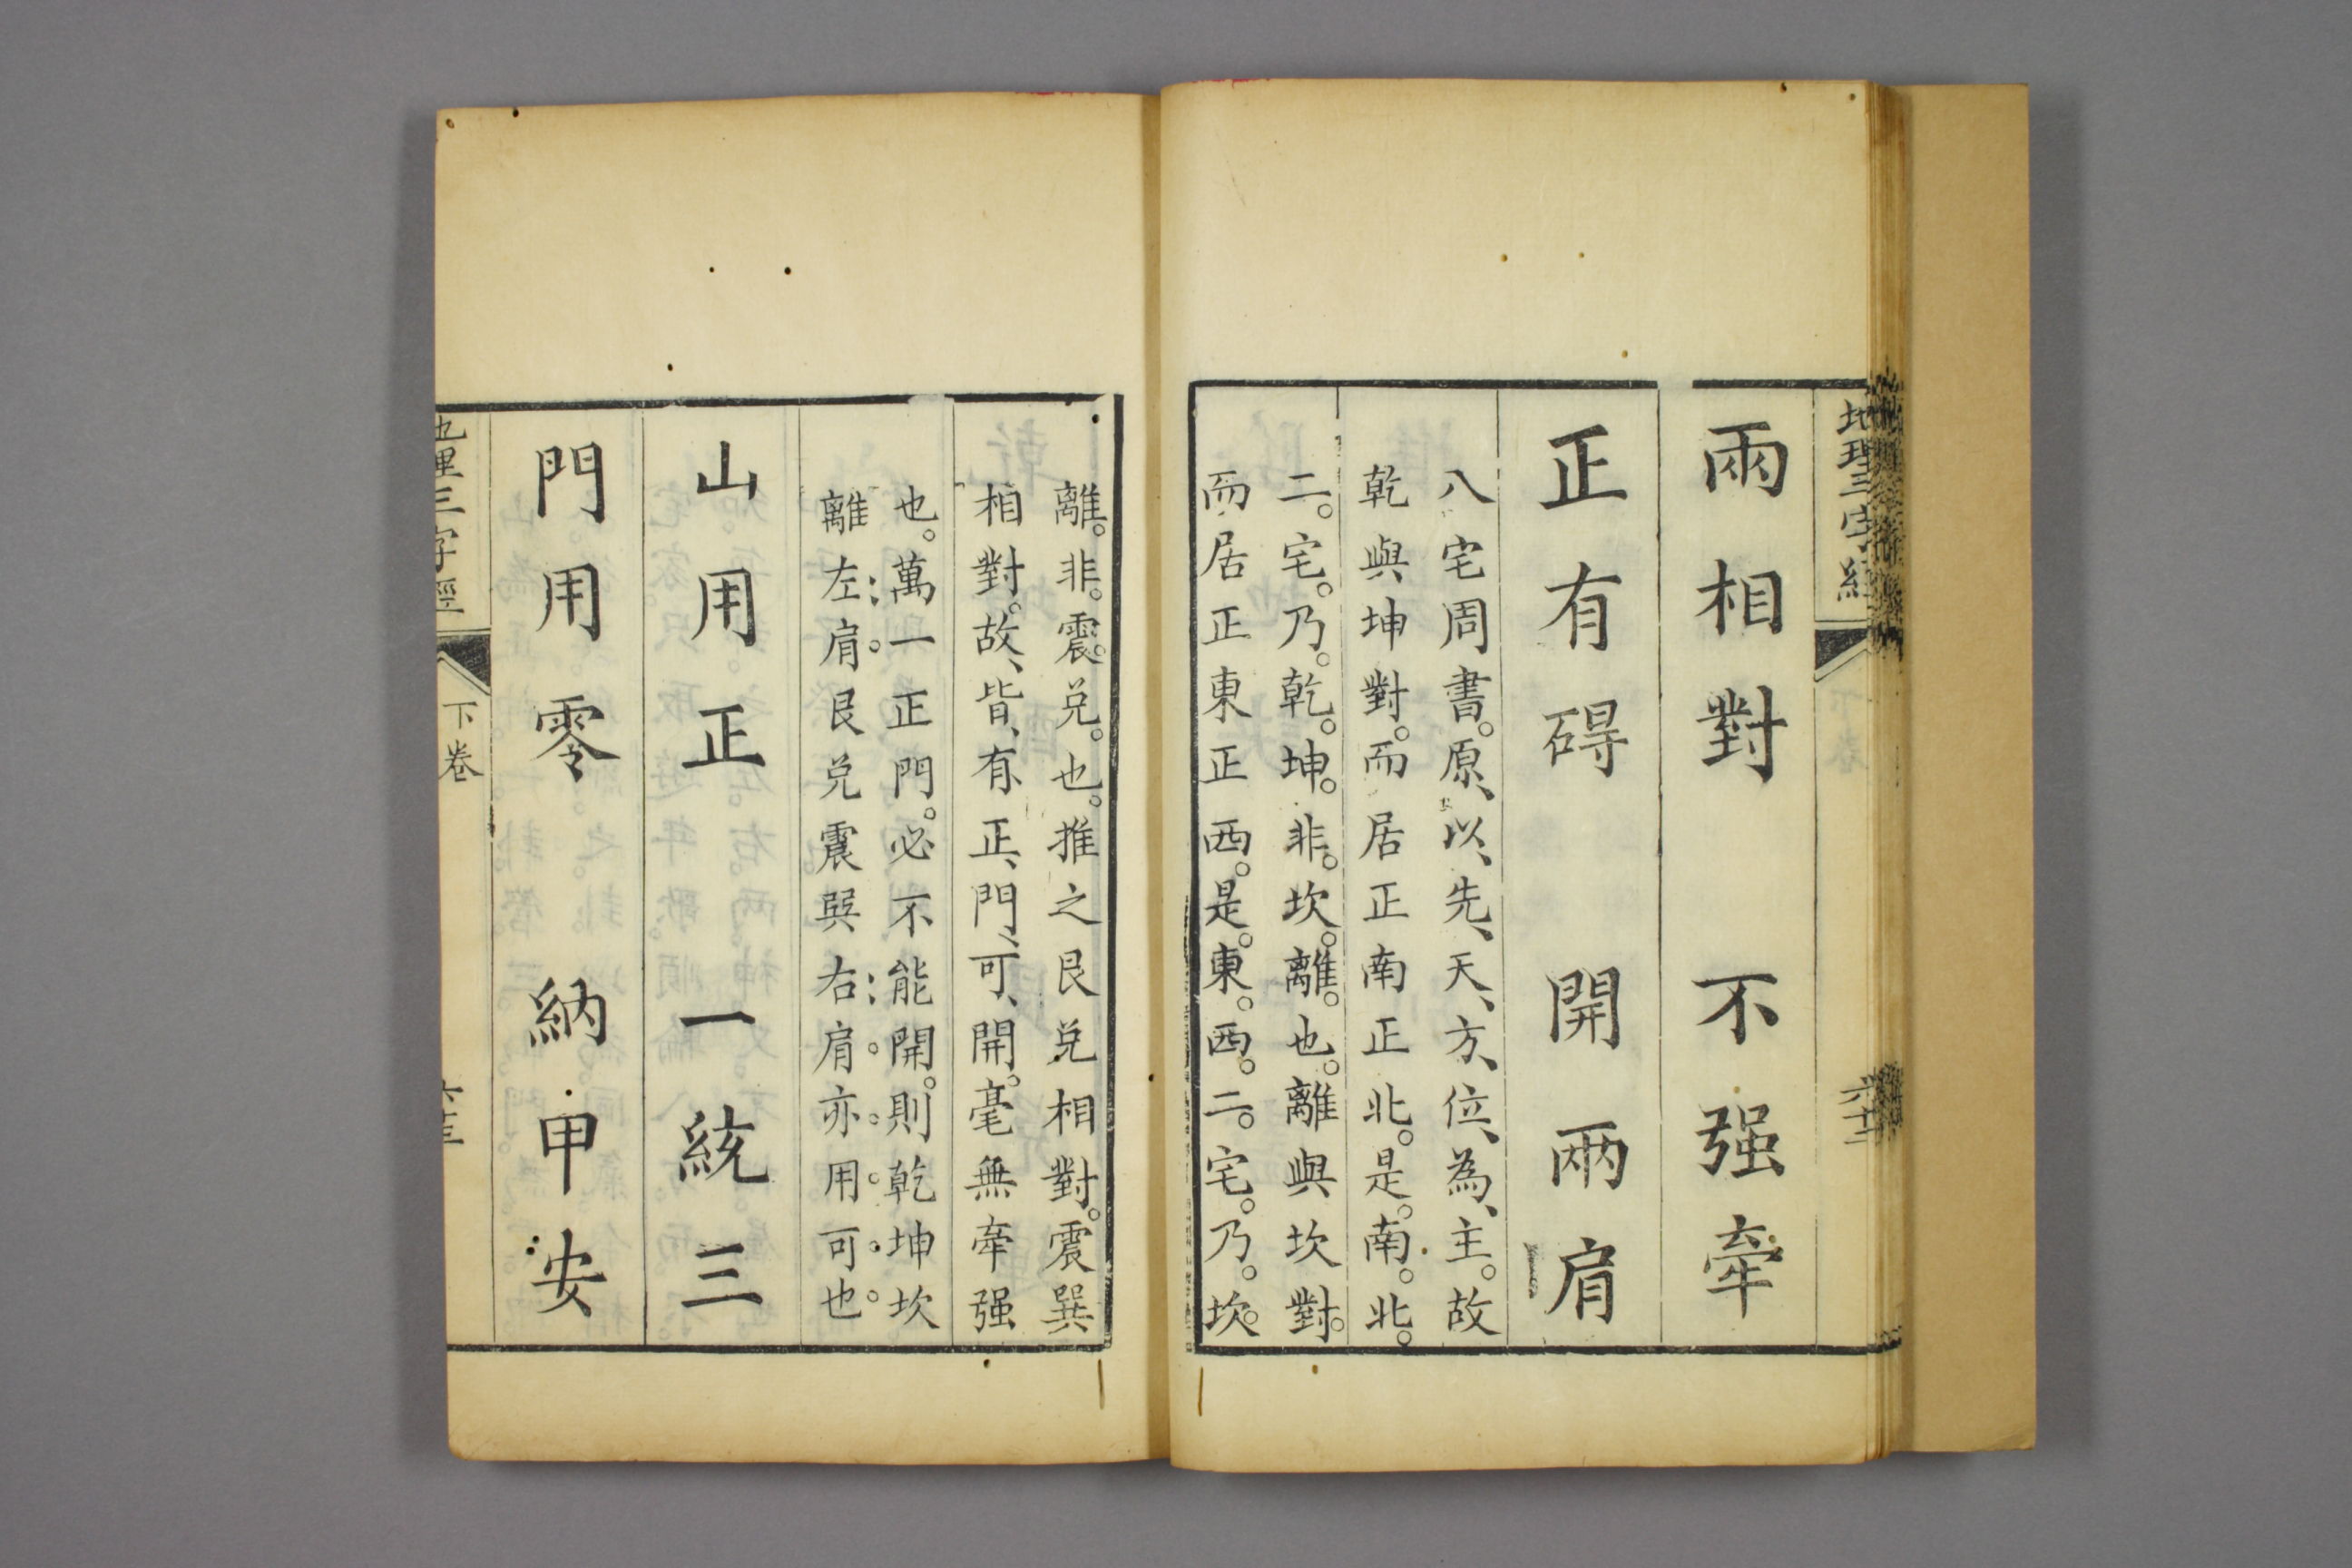 地理三字經
六十二
兩相對　不强牽
正有碍　開兩肩
八宅周書。原、以、先、天、方、位、為、主。故
乾與坤對。而居正南正北。是。南。北。
二。宅。乃。乾。坤。非。坎。離。也。離與坎對。
而居正東正西。是。東。西。二。宅。乃。坎。
離。非。震。兌。也。推之艮兌相對。震巽
相對。故、皆、有、正、門、可、開。毫無牽强
也。萬一正門。必不能開。則乾坤坎
離左肩。艮兌震巽右肩。亦。用。可。也。
山用正　一統三
門用零　納甲安
地理三字經
下卷
六十三